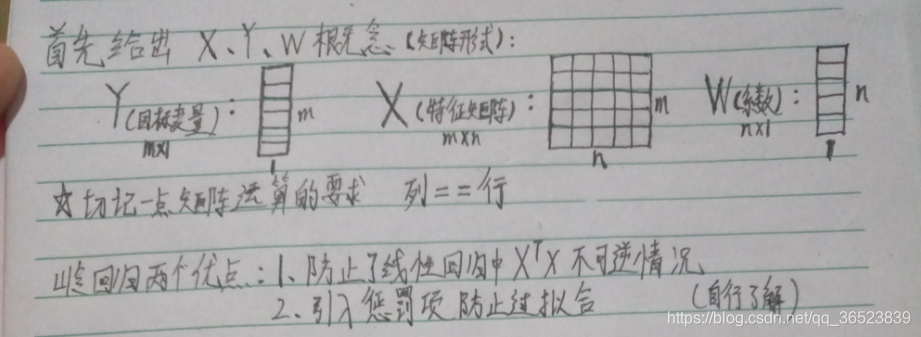 首先给出 X、Y、W 概念(矩阵形式):
Y(目标变量): m X(特征矩阵): m W(系数): n
m×1 1 m×n n n×1 1
☆切记一点矩阵运算的要求 列==行
岭回归两个优点:1、防止了线性回归中XᵀX不可逆情况
2、引入惩罚项 防止过拟合 (自行了解)
https://blog.csdn.net/qq_36523839